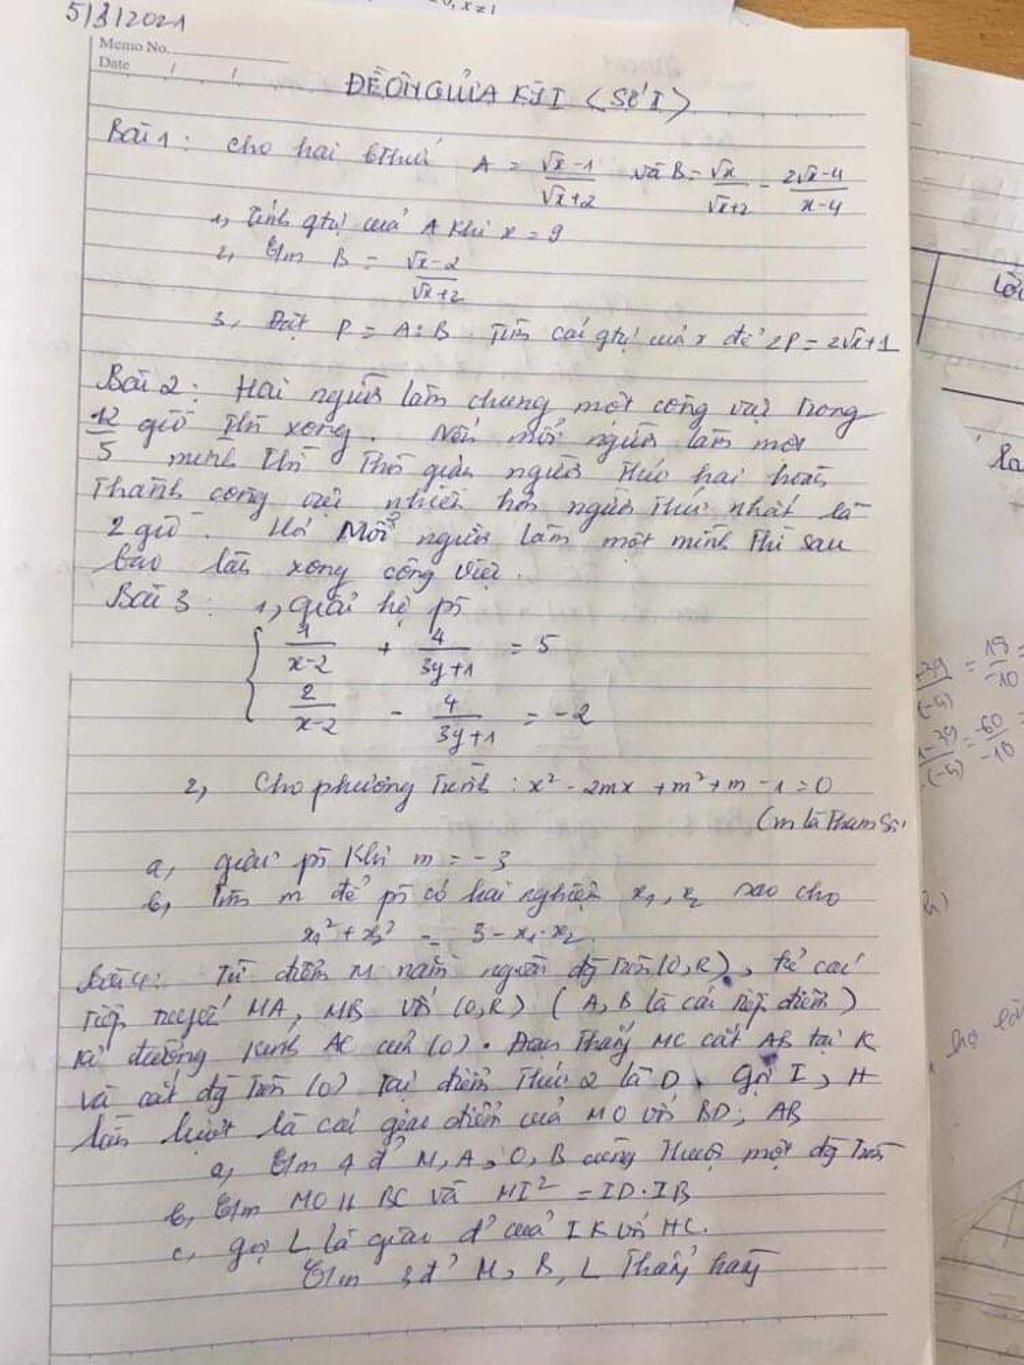 5/3/2021
Memo No.
Date / /
ĐỀ ÔN GIỮA KỲ I (SỐ 1)
Bài 1: Cho hai bthức A = (√x-1)/(√x+2) và B = √x/(√x+2) - (2√x-4)/(x-4)
1, Tính gtrị của A khi x = 9
2, Cm B = (√x-2)/(√x+2)
3, Đặt P = A:B. Tìm các gtrị của x để 2P = 2√x+1
Bài 2: Hai người làm chung một công việc trong
12/5 giờ thì xong. Nếu mỗi người làm một
mình thì thời gian người thứ hai hoàn
thành công việc nhiều hơn người thứ nhất là
2 giờ. Hỏi Mỗi người làm một mình thì sau
bao lâu xong công việc.
Bài 3: 1, giải hệ pt
1/(x-2) + 4/(3y+1) = 5
2/(x-2) - 4/(3y+1) = -2
2, Cho phương trình: x² - 2mx + m² + m - 1 = 0
(m là tham số)
a, giải pt khi m = -3
b, Tìm m để pt có hai nghiệm x₁, x₂ sao cho
x₁² + x₂² = 3 - x₁.x₂
Bài 4: Từ điểm M nằm ngoài đg tròn (O,R), kẻ các
tiếp tuyến MA, MB với (O,R) (A, B là các tiếp điểm)
kẻ đường kính AC của (O). Đoạn thẳng MC cắt AB tại K
và cắt đg tròn (O) tại điểm thứ 2 là D. Gọi I, H
lần lượt là các giao điểm của MO với BD; AB
a, Cm 4 đ' M, A, O, B cùng thuộc một đg tròn
b, Cm MO // BC và MI² = ID.IB
c, gọi L là giao đ' của IK với HC.
Cm 3 đ' M, B, L thẳng hàng